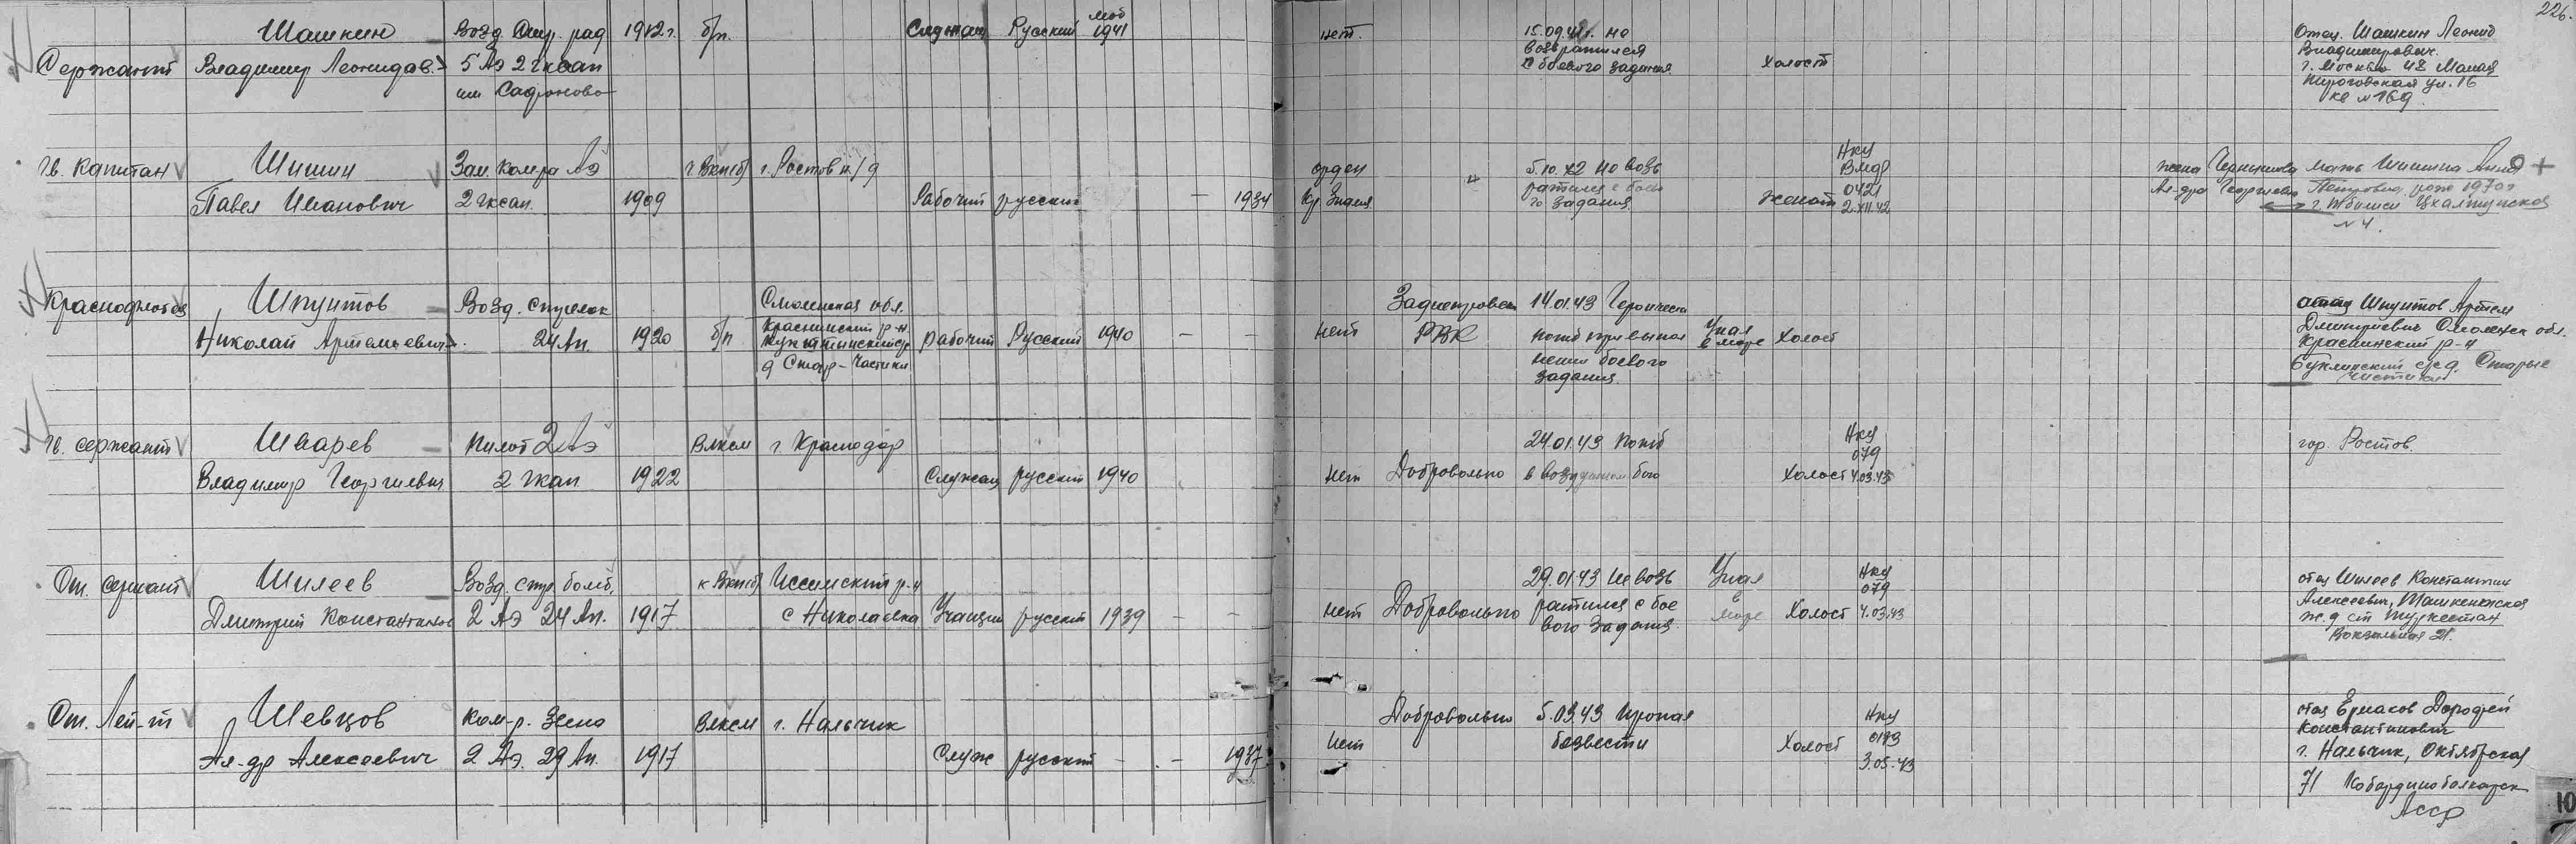 226.
Шашкин Возд. Стр. рад 1912 г. б/п. Служащ Русский моб 1941 нет. 15.09.42 г. не Отец. Шашкин Леонид
Сержант Владимир Леонидов. 5 Аэ 2 гксап возвратился с боевого задания Холост Владимирович.
им Сафонова г. Москва 48 Малая
Пироговская ул. 16
кв № 169
гв. Капитан Шишин Зам. Ком-ра Аэ г. Ростов н/д орден 5.10.42 не возв НКУ ВМФ жена мать Шишина Анна
Павел Иванович 2 гксап. 1909 Рабочий русский — 1934 Кр. Знамя " ратился с боево го задания женат 0421 2.XII.42 Ал-дра Георгиевна Петровна
г. Тбилиси
№ 4.
Краснофлотец Шпунтов Возд. Стрелок Смоленская обл. Заднепровск 14.01.43 Героически отец Шпунтов Артем
Николай Артемьевич 24 Ап. 1920 б/п Краснинский р-н рабочий Русский 1940 — — нет РВК погиб при выпол Упал в море Холост Дмитриевич Смоленск обл.
д Стар-Частики нении боевого Краснинский р-н
задания. Старые
гв. сержант Шварев Пилот 2 Аэ Влксм г. Краснодар 24.01.43 погиб НКУ 079 гор. Ростов.
Владимир Георгиевич 2 гкап 1922 Служащ русский 1940 нет Добровольно в воздушном бою Холост 4.03.43
Ст. сержант Шилеев Возд. стр. бомб. к Вкп(б) Иссинский р-н 29.01.43 не возв Упал НКУ 079 отец Шилеев Константин
Дмитрий Константинов 2 Аэ 24 Ап. 1917 с Николаевка Учащий русский 1939 — — нет Добровольно ратился с бое в море Холост 4.03.43 Алексеевич, Ташкентская
вого задания. ж.д ст Туркестан
Вокзальная 21.
Ст. Лей-т Шевцов Ком-р. Звена Влксм г. Нальчик Добровольно 5.03.43 Пропал НКУ отец Ермаков Дорофей
Ал-др Алексеевич 2 Аэ. 29 Ап. 1917 Служ русский — — 1937 нет безвести Холост 0193 3.05.43 Константинович
г. Нальчик, Октябрьская
71 Кабардинобалкарск
Асср